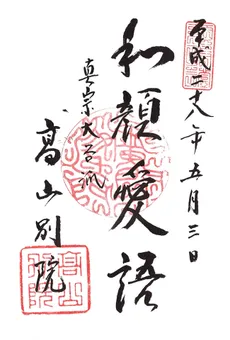 平成二十八年五月三日
和顔愛語
真宗大谷派
高山別院